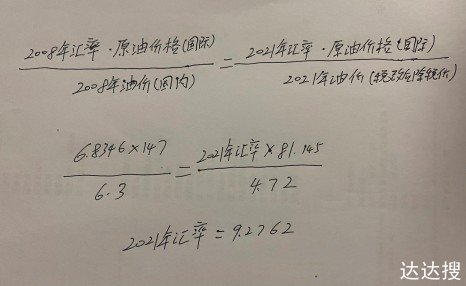 2008年汇率·原油价格(国际) = 2021年汇率·原油价格(国际)
2008年油价(国内) 2021年油价(税改后除税价)
6.8346×147 = 2021年汇率×81.145
6.3 4.72
2021年汇率=9.2762
达达搜